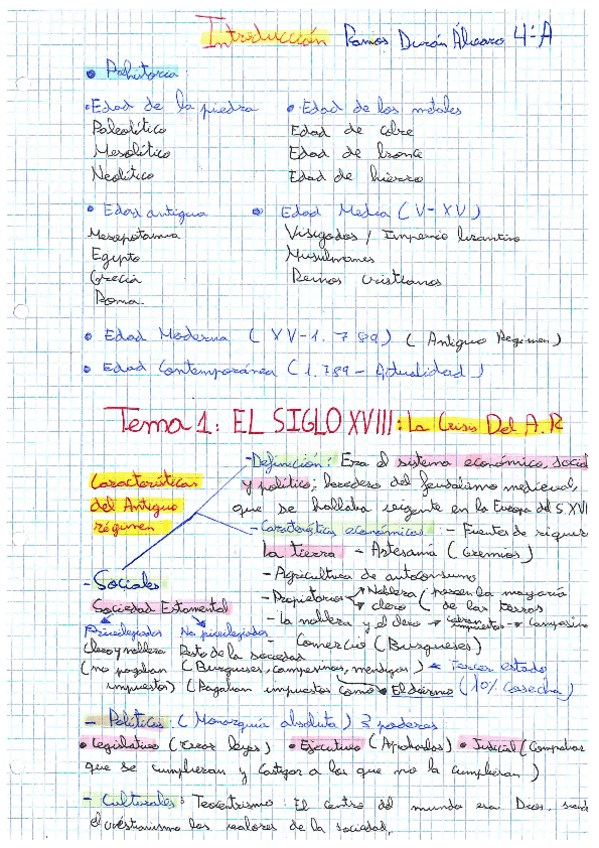 Introducción Ramos Durán Álvaro 4º A
• Prehistoria:
• Edad de la piedra
Paleolítico
Mesolítico
Neolítico
• Edad de los metales
Edad de cobre
Edad de bronce
Edad de hierro
• Edad antigua
Mesopotamia
Egipto
Grecia
Roma.
• Edad Media (V-XV)
Visigodos / Imperio bizantino
Musulmanes
Reinos cristianos
• Edad Moderna (XV-1.789) (Antiguo Régimen)
• Edad Contemporánea (1.789 - Actualidad)
Tema 1: EL SIGLO XVIII: La Crisis Del A.R
Características
del Antiguo
régimen
- Definición: Era el sistema económico, social
y político; heredero del feudalismo medieval,
que se hallaba vigente en la Europa del s. XVI
- Característica económicas: - Fuentes de riques
la tierra - Artesanía (Gremios)
- Agricultura de autoconsumo
- Propietarios → Nobleza / poseen la mayoría
→ clero ( de las tierras
- La nobleza y el clero → Cobran impuestos → Campesino
- Comercio (Burgueses)
- Sociales
Sociedad Estamental
Privilegiados No privilegiados
Clero y nobleza Resto de la sociedad
(no pagaban (Burgueses, campesinos, mendigos) ← Tercer estado
impuestos) (Pagaban impuestos como → El diezmo (10% cosecha)
- Políticas: (Monarquía absoluta) 3 poderes
• Legislativo (Crear leyes) • Ejecutivo (Aprobarlos) • Judicial (Comprobar
que se cumplieran y castigar a los que no la cumplieran)
- Culturales: Teocentrismo: El centro del mundo era Dios,
el cristianismo los valores de la sociedad.